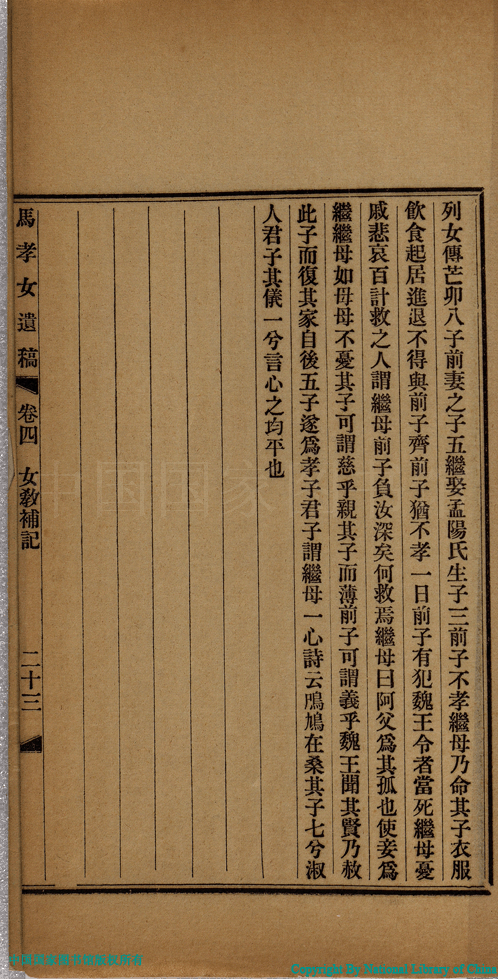 列女傳芒卯八子前妻之子五繼娶孟陽氏生子三前子不孝繼母乃命其子衣服
飲食起居進退不得與前子齊前子猶不孝一日前子有犯魏王令者當死繼母憂
戚悲哀百計救之人謂繼母前子負汝深矣何救焉繼母曰阿父爲其孤也使妾爲
繼繼母如母母不憂其子可謂慈乎親其子而薄前子可謂義乎魏王聞其賢乃赦
此子而復其家自後五子遂爲孝子君子謂繼母一心詩云鳲鳩在桑其子七兮淑
人君子其儀一兮言心之均平也
馬孝女遺稿 卷四 女敎補記 二十三
中國国家图书馆版权所有
Copyright By National Library of China